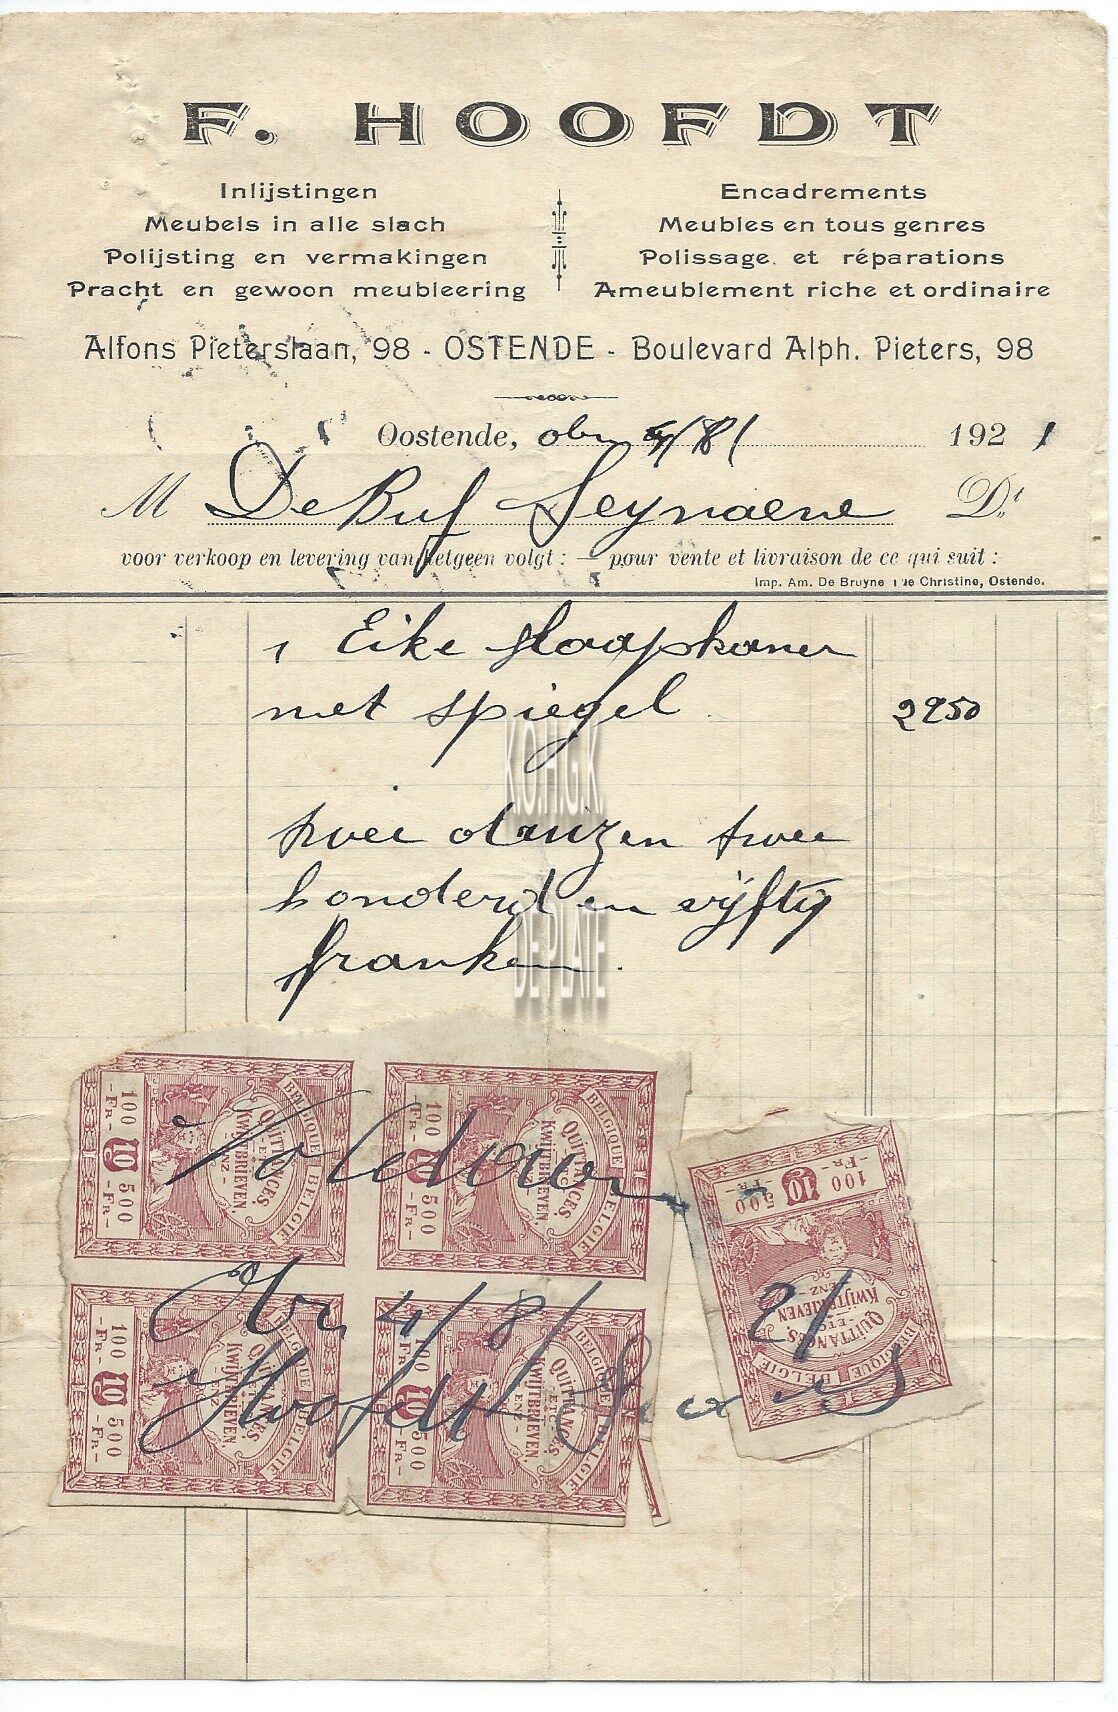 F. HOOFDT
Inlijstingen
Meubels in alle slach
Polijsting en vermakingen
Pracht en gewoon meubleering
Encadrements
Meubles en tous genres
Polissage et réparations
Ameublement riche et ordinaire
Alfons Pieterslaan, 98 - OSTENDE - Boulevard Alph. Pieters, 98
Oostende, den 4/8/ 1921
M De Buf Seynaeve Dt
voor verkoop en levering van hetgeen volgt : — pour vente et livraison de ce qui suit :
Imp. Am. De Bruyne rue Christine, Ostende.
1 Eike slaapkamer
met spiegel 2250
K.O.H.G.K.
twee duizen twee
honderd en vijftig
franken.
DE PLATE
BELGIQUE BELGIE
QUITTANCES, ETC
KWIJTBRIEVEN, ENZ
100 10 500
FR FR
BELGIQUE BELGIE
QUITTANCES, ETC
KWIJTBRIEVEN, ENZ
100 10 500
FR FR
BELGIQUE BELGIE
QUITTANCES, ETC
KWIJTBRIEVEN, ENZ
100 10 500
FR FR
Voldaan
den 4/8/ 21
Hoofdt
BELGIQUE BELGIE
QUITTANCES, ETC
KWIJTBRIEVEN, ENZ
100 10 500
FR FR
BELGIQUE BELGIE
QUITTANCES, ETC
KWIJTBRIEVEN, ENZ
100 10 500
FR FR